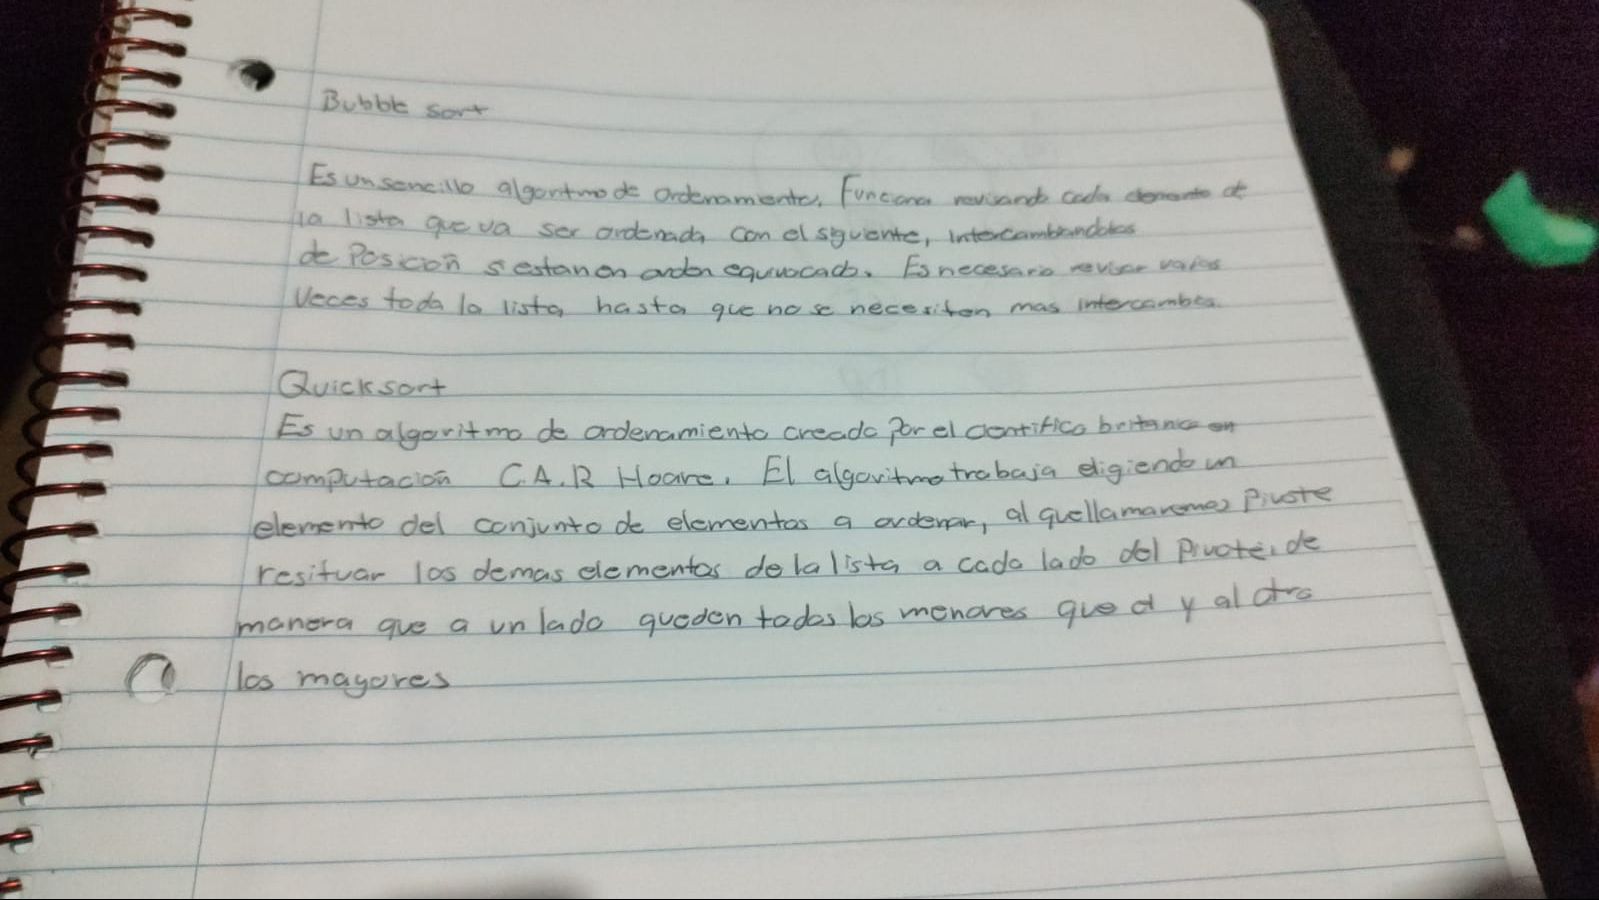 Bubble sort
Es un sencillo algoritmo de ordenamiento, Funciona revisando cada elemento de
la lista que va ser ordenada con el siguiente, intercambiandolos
de Posicioñ si estan en orden equivocado. Es necesario revisar varias
Veces toda la lista hasta que no se necesiten mas intercambios.
Quicksort
Es un algoritmo de ordenamiento creado Por el cientifico britanico en
computacioñ C.A.R Hoare. El algoritmo trabaja eligiendo un
elemento del conjunto de elementos a ordenar, al que llamaremos Pivote
resituar los demas elementos de la lista a cada lado del Pivote, de
manera que a un lado queden todos los menores que el y al otro
los mayores